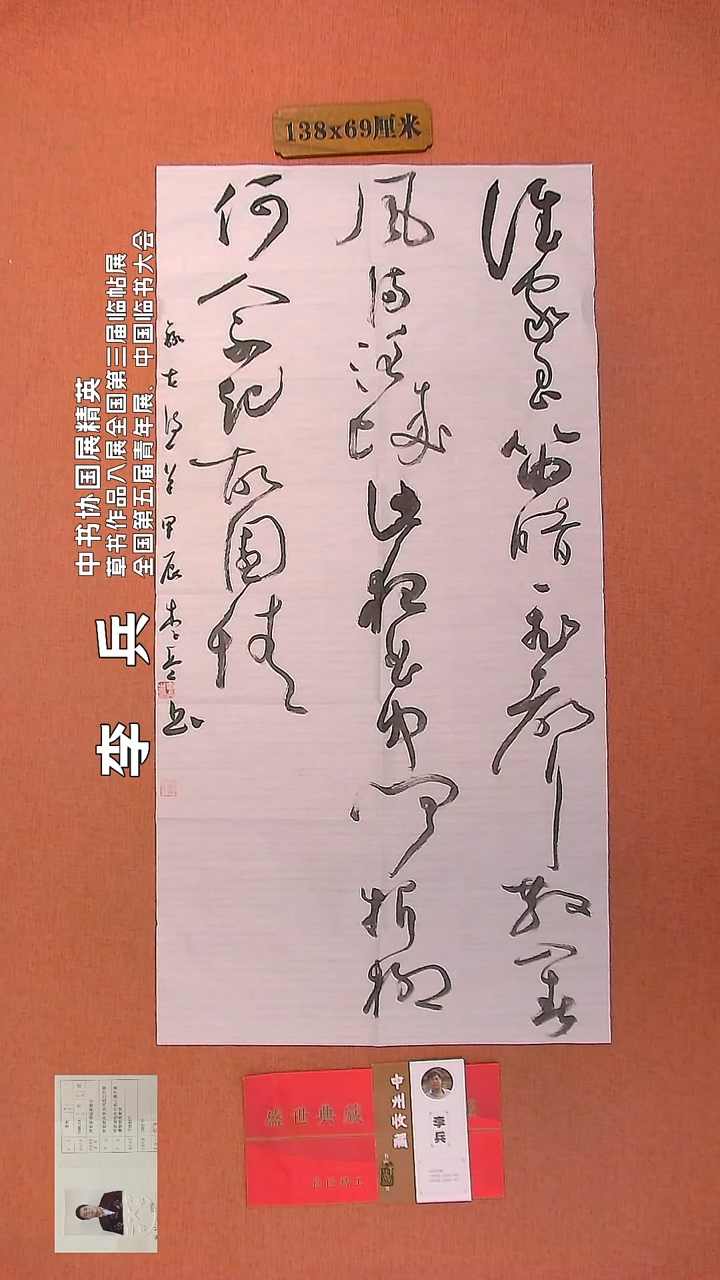 138x69厘米
誰家玉笛暗飛聲散入春
風滿洛城此夜曲中聞折柳
何人不起故園情
錄古詩一首甲辰李兵书
中书协国展精英
草书作品入展全国第三届临帖展
全国第五届青年展、中国临书大会
李兵
盛世典藏
李兵